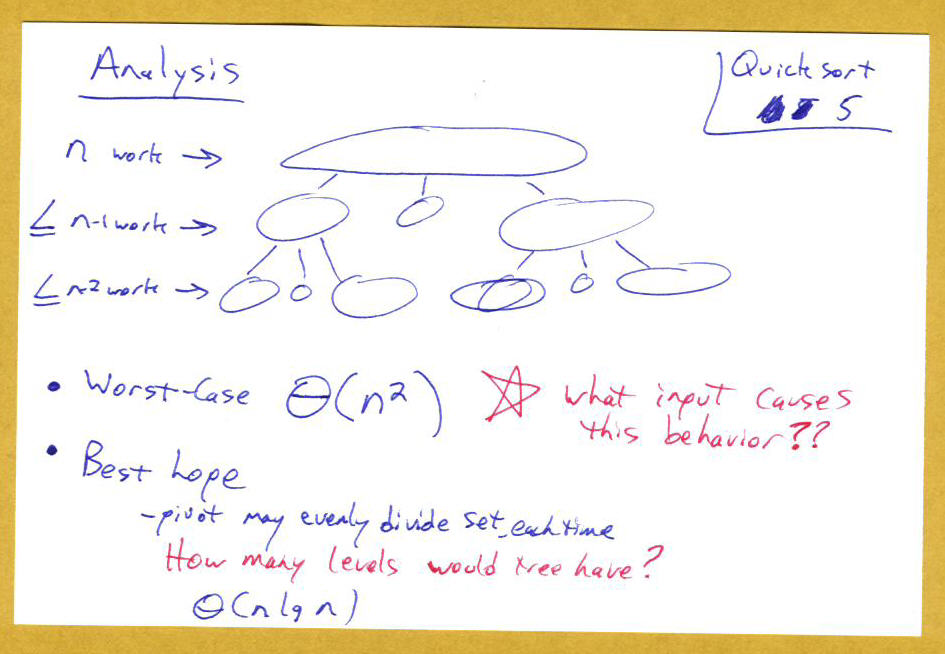 Analysis
Quicksort
5
n work →
≤ n-1 work →
≤ n-2 work →
• Worst-Case Θ(n²) ☆ what input causes
this behavior??
• Best hope
- pivot may evenly divide set each time
How many levels would tree have?
Θ(n lg n)